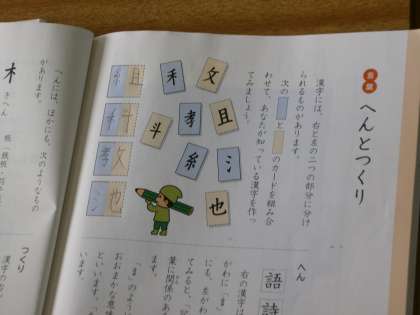 言葉
へんとつくり
漢字には、右と左の二つの部分に分け
られるものがあります。
次の　と　のカードを組み合
わせて、あなたが知っている漢字を作っ
てみましょう。
攵
且
氵
也
禾
孝
糸
斗
糸且
禾斗
孝攵
氵也
へん
語
詩
右の漢字は
がわに「言
にも、左がわ
てみると、「記
葉に関係のあ
ます。
「言」のよう
おおまかな意
といいます。
います。
つくり
漢字の右
へんには、ほかにも、次のようなもの
があります。
木
きへん